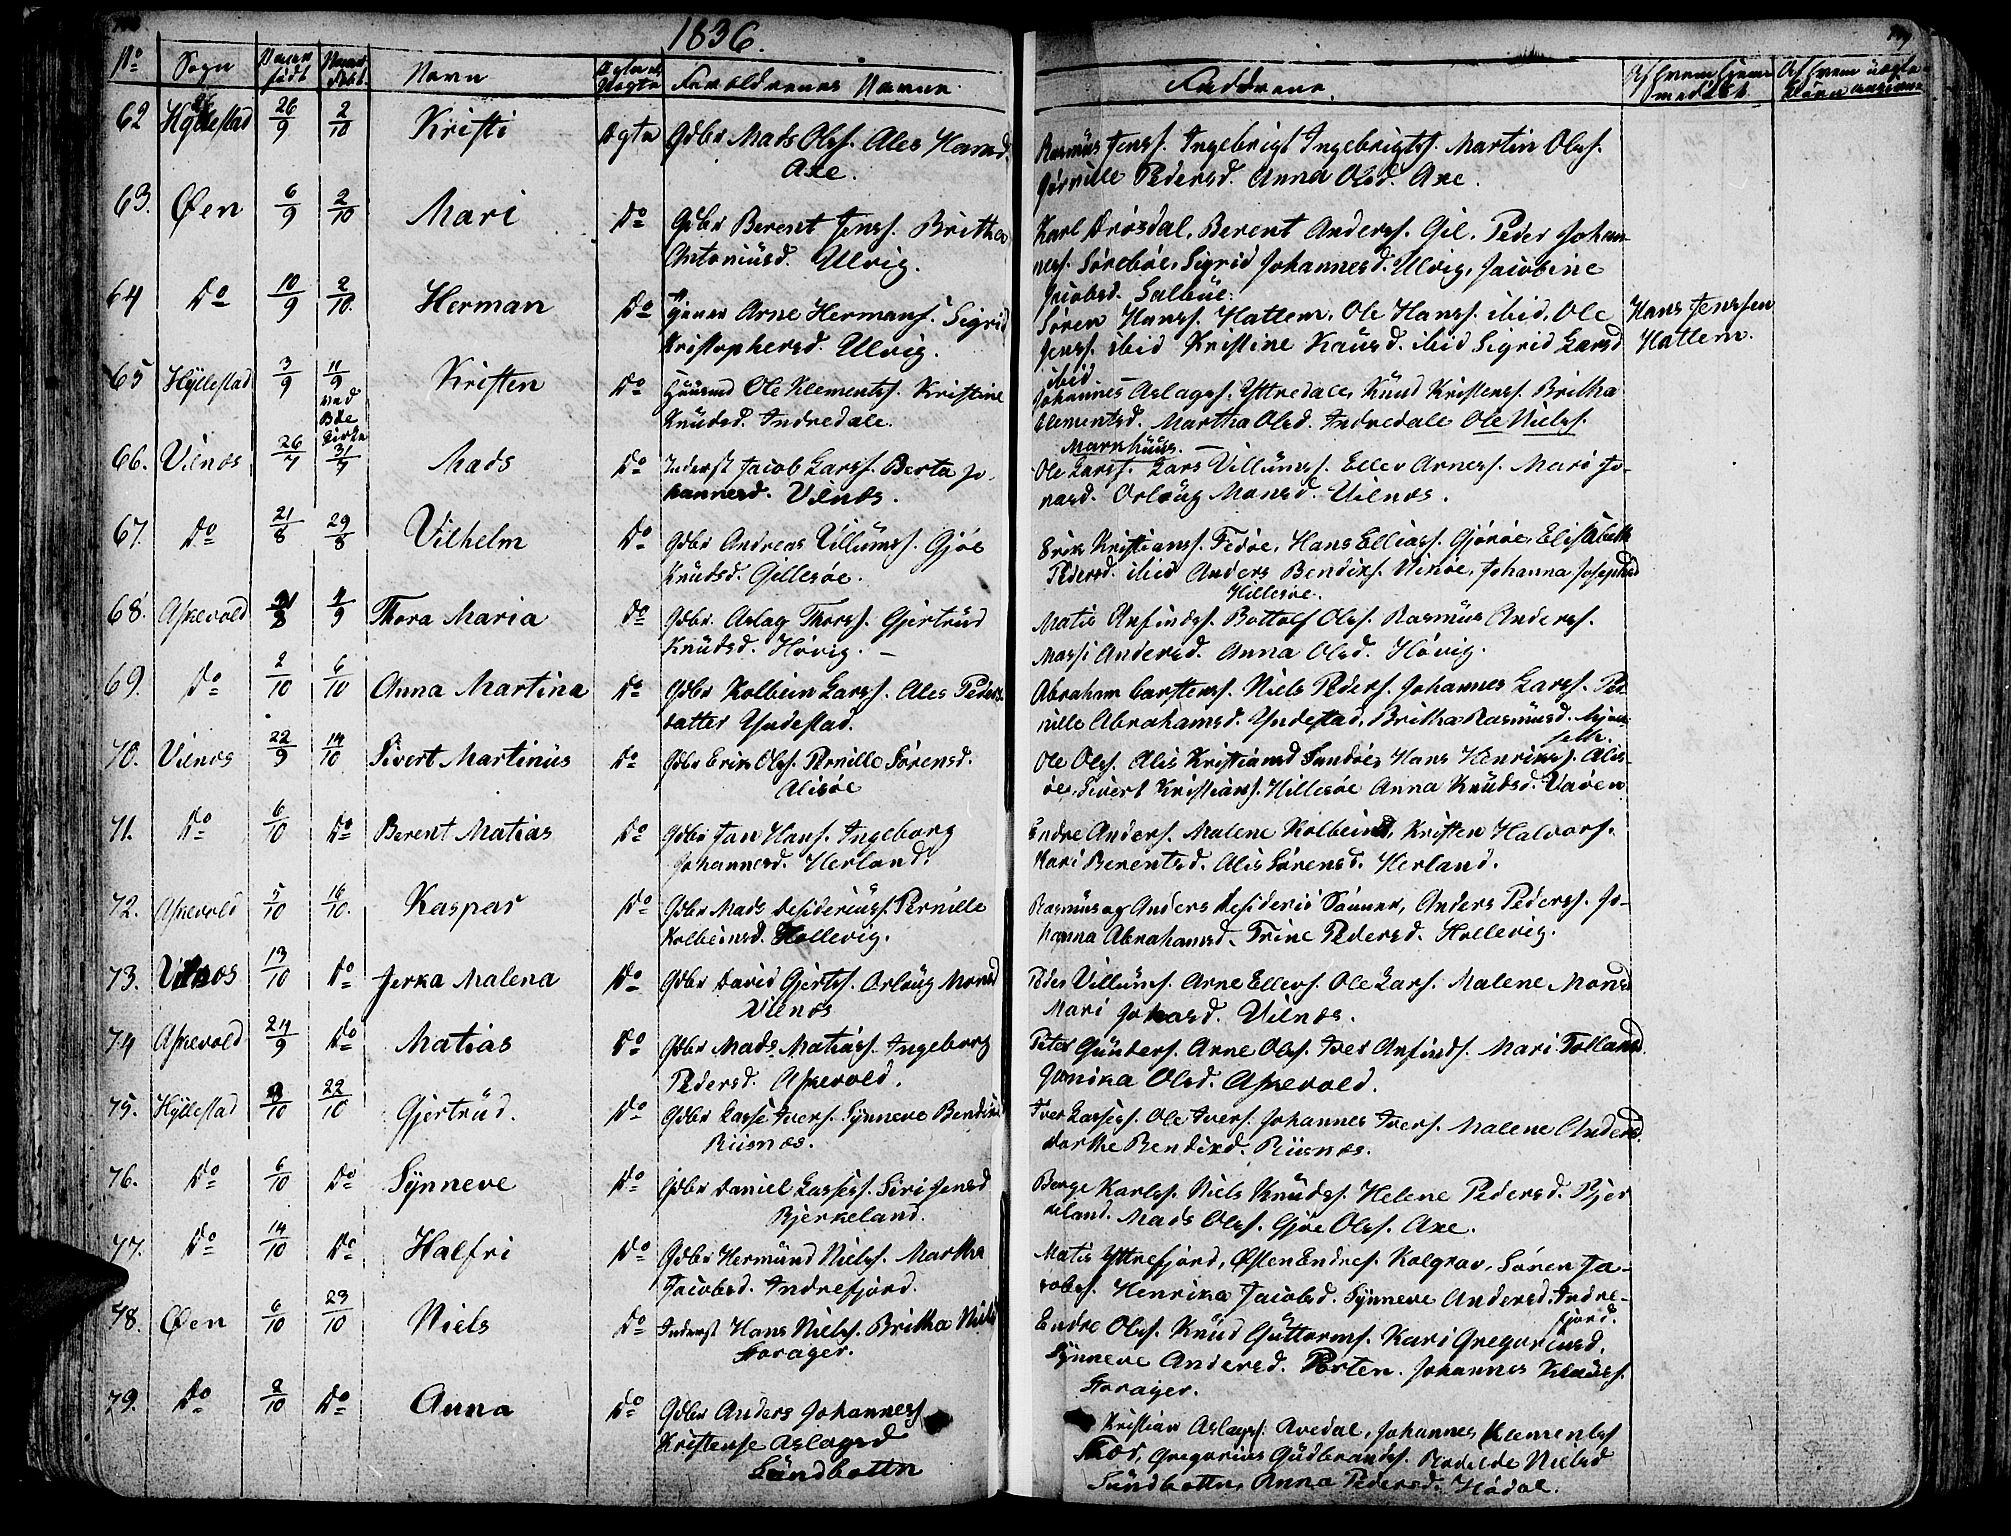 1836.
No Sogn Naar født Naar døbt Navn Ægte el. Uægte Forældrenes Navne. Faddrene. Af hvem hjemmedøbt Af hvem uægte Børn angivne
62 Hyllestad 26/9 2/10 Kristi Ægte Gdbr Mads Olss. Ales Hansd.
Axe.
Rasmus Jenss. Ingebrigt Ingebrigtss. Martin Olss.
Pedersd. Anna Olsd. Axe.
63. Øen 6/9 2/10 Mari Do Gdbr Berent Jenss. Britha
Antoniusd. Ulvig.
Karl Drøsdal, Berent Anderss. Gil, Peder Johan-
ness. Sørebøe, Sigrid Johannesd. Ulvig, Jacobine
Jacobsd. Salbue.
64 Do 10/9 2/10. Herman Do Arne Hermans. Sigrid
Kristophersd. Ulvig.
Søren Hanss. Hattem, Ole Hanss. ibid, Ole
Jenss. ibid Kristine Knusd. ibid Sigrid Larsd
ibid.
Hans Jenssen
Hattem.
65 Hyllestad 3/9 11/9 ved Bøe Kirke Kristen Do Huusmd Ole Klementss. Kristine
Knudsd. Indredale.
Johannes Aslagss. Yttredale, Knud Kristenss. Britha
Clementsd. Martha Olsd. Indredale Ole Nielss.
Marnhuus.
66. Vilnæs 26/7 31/7 Mads Do Inderst Jacob Larss. Berta Jo-
hannesd. Vilnæs.
Ole Larss. Lars Villumss. Ellev Arness. Mari Jo-
nasd. Orløug Monsd. Vilnæs.
67. Do 21/8 29/8 Vilhelm Do Gdbr Andreas Villumss. Gjøe
Knudsd. Gillesøe.
Erik Kristianss. Fedøe, Hans Elliass. Gjørøe, Elisabeth
Pedersd. ibid Anders Bendiks. Vixøe, Johanna Josephsd
Hillesøe.
68. Askevold 4/9 Thora Maria Do Gdbr. Aslag Thorss. Gjertrud
Knudsd. Høvig.
Matis Anfindss. Bottolf Olss. Rasmus Anderss.
Massi Andersd. Anna Olsd. Høvig.
69. Do 2/10 6/10 Anna Martina Do Gdbr Kolbein Larss. Ales Peders
datter Yndestad.
Abraham Carstenss. Niels Pederss. Johannes Larss. Per-
nille Abrahamsd. Yndestad, Britha Rasmusd.
70. Vilnæs 22/9 14/10 Sivert Martinus Do Gdbr Erik Olss. Pernille Sørensd.
Alisøe
Ole Olss. Alis Kristiansd Sundøe, Hans Henrikss. Alis-
øe, Sivert Kristianss. Hillesøe Anna Knudsd. Vaøen
71. Do 6/10 Do Berent Matias Do Gdbr Jan Hanss. Ingeborg
Johannesd. Herland.
Endre Anderss. Malene Kolbeinsd, Kristen Halvorss.
Kari Berentsd. Alis Sørensd. Herland.
72. Askevold 5/10 16/10. Kaspar Do Gdbr Mads Desideriuss. Pernille
Kolbeinsd. Hollevig.
Rasmus og Anders Desiderii Sønner, Anders Pederss. Jo-
hanna Abrahamsd. Trine Pedersd. Hollevig.
73. Vilnæs 13/10 Do Jerka Malena Do Gdbr David Gjertss. Orløug Monsd
Vilnæs
Peder Villumss. Arne Ellevs. Ole Lars. Malene Monsd
Mari Johasd. Vilnæs.
74 Askevold 24/9 Do Matias Do Gdbr Mads Matiass. Ingeborg
Pedersd. Askevold.
Peter Gunders. Arne Olss. Iver Anfinds. Mari Folland
Janika Olsd. Askevold.
75. Hyllestad 22/10 Gjertrud. Do Gdbr Lasse Ivers. Synneve Bendixd
Riisnæs.
Iver Lassess. Ole Ivers. Johannes Ivers. Malene Andersd.
Dorthe Bendixd. Riisnæs.
76. Do 6/10 Do Synneve Do Gdbr Daniel Lassess. Siri Jensd
Bjerkeland.
Børge Karlss. Niels Knudss. Helene Pedersd. Bjer
keland. Mads Olss. Gjøe Olss. Axe.
77. Do 14/10 Do Halfri Do Gdbr Hermund Nielss. Martha
Jacobsd. Indrefjord.
Matis Yttrefjord, Østen Endres. Kolgrav, Søren Ja-
cobss. Henrika Jacobsd. Synneve Andersd. Indre-
fjord.
78. Øen 6/10 23/10 Niels Do Inderst Hans Nielss. Britha Nielsd
Storager.
Endre Olss. Knud Guttorms. Kari Gregoriusd.
Synneve Andersd. Porten. Johannes Klauss.
Storager.
79. Do 2/10 Do Anna Do Gdbr Anders Johanness
Kristense Aslagsd
Sundbotten
Kristian Aslagss. Avedal, Johannes Klementss
Gregorius Gudbrandss. Radelde Nielsd
Sundbotten, Anna Pedersd. Hødal.